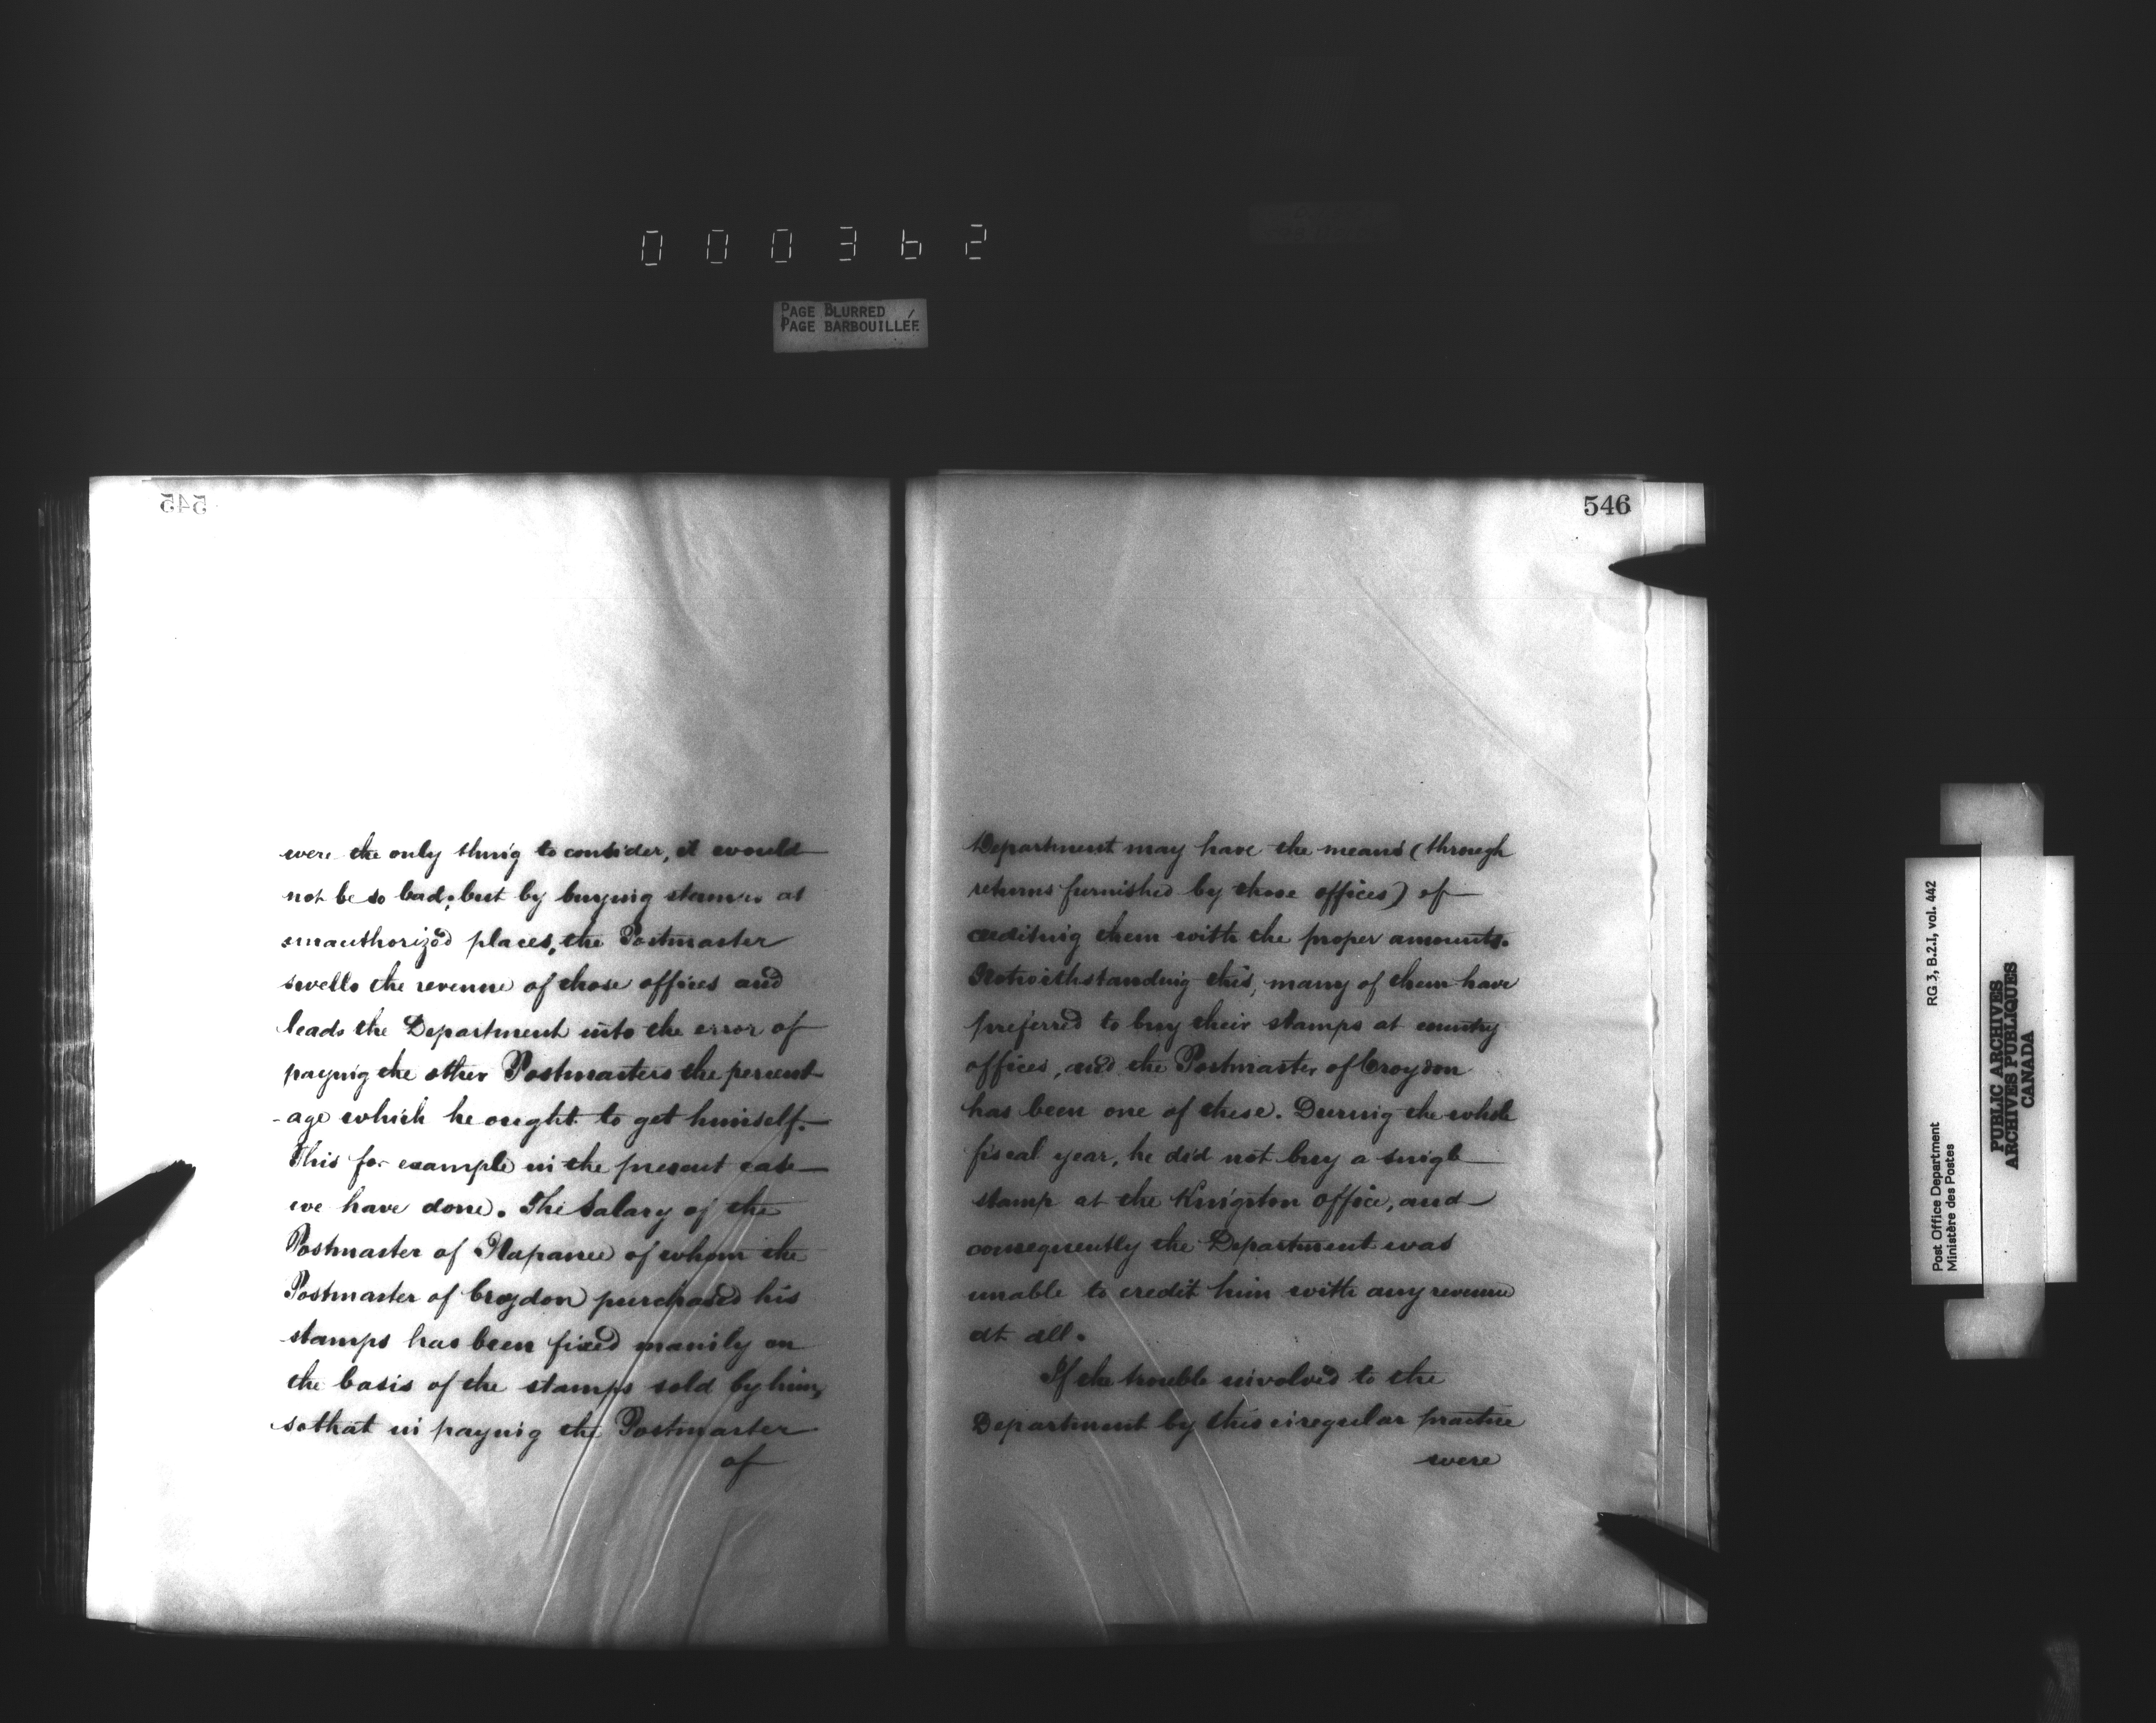 000362
PAGE BLURRED
PAGE BARBOUILLÉE
545
were the only thing to consider, it would
not be so bad; but by buying stamps at
unauthorized places, the Postmaster
swells the revenue of those offices and
leads the Department into the error of
paying the other Postmasters the percent
-age which he ought to get himself.
This for example in the present case
we have done. The Salary of the
Postmaster of Napanee of whom the
Postmaster of Croydon purchased his
stamps has been fixed mainly on
the basis of the stamps sold by him,
so that in paying the Postmaster
of
546
Department may have the means (through
returns furnished by those offices) of
crediting them with the proper amounts.
Notwithstanding this, many of them have
preferred to buy their stamps at country
offices, and the Postmaster of Croydon
has been one of these. During the whole
fiscal year, he did not buy a single
stamp at the Kingston office, and
consequently the Department was
unable to credit him with any revenue
at all.
If the trouble involved to the
Department by this irregular practice
were
Post Office Department
Ministère des Postes
RG 3, B.2.I, vol. 442
PUBLIC ARCHIVES
ARCHIVES PUBLIQUES
CANADA